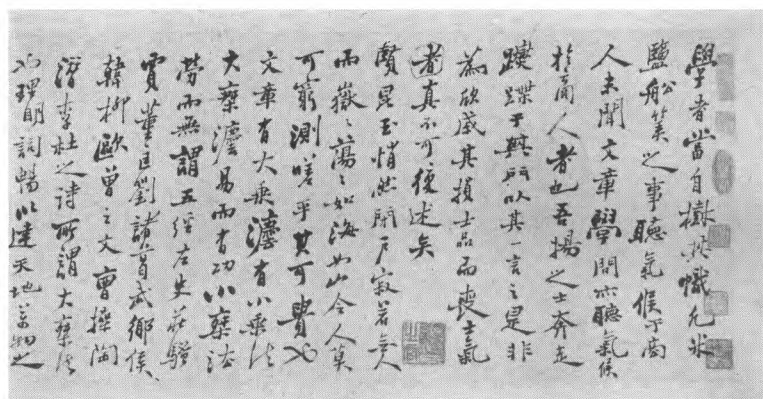 學者當自樹其幟凡米
鹽舩筭之事聽氣候于商
人未聞文章學問亦聽氣候
於商人者也吾揚之士奔走
躞蹀于其門以其一言之是非
為欣戚其損士品而喪士氣
真不可復述矣
賢昆玉悄然閉戶寂若無人
而嶽〻蕩〻如海如山令人莫
可窮測嗟乎其可貴也
文章有大乘灋有小乘法
大乘灋易而有功小乘法
勞而無謂五經左史莊騷
賈董匡劉諸葛武鄉侯
韓柳歐曾之文曹操陶
潛李杜之詩所謂大乘法
也理明詞暢以達天地萬物之